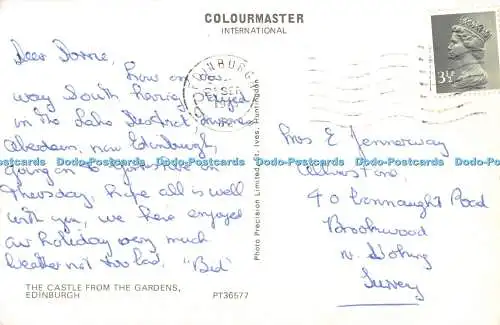 COLOURMASTER
INTERNATIONAL
Dear
now on our
way South having stayed
in the Lake District Inverness
Aberdeen, now Edinburgh,
going on to Yorkshire on
Thursday, hope all is well
with you, we have enjoyed
our holiday very much
weather not too bad. "Bed"
THE CASTLE FROM THE GARDENS,
EDINBURGH
PT36577
Photo Precision Limited, St. Ives, Huntingdon
EDINBURGH
SEP
3½
Mrs E
40 Connaught Road
Brookwood
Nr Woking
Surrey
Dodo-Postcards Dodo-Postcards Dodo-Postcards Dodo-Postcards Dodo-Postcards